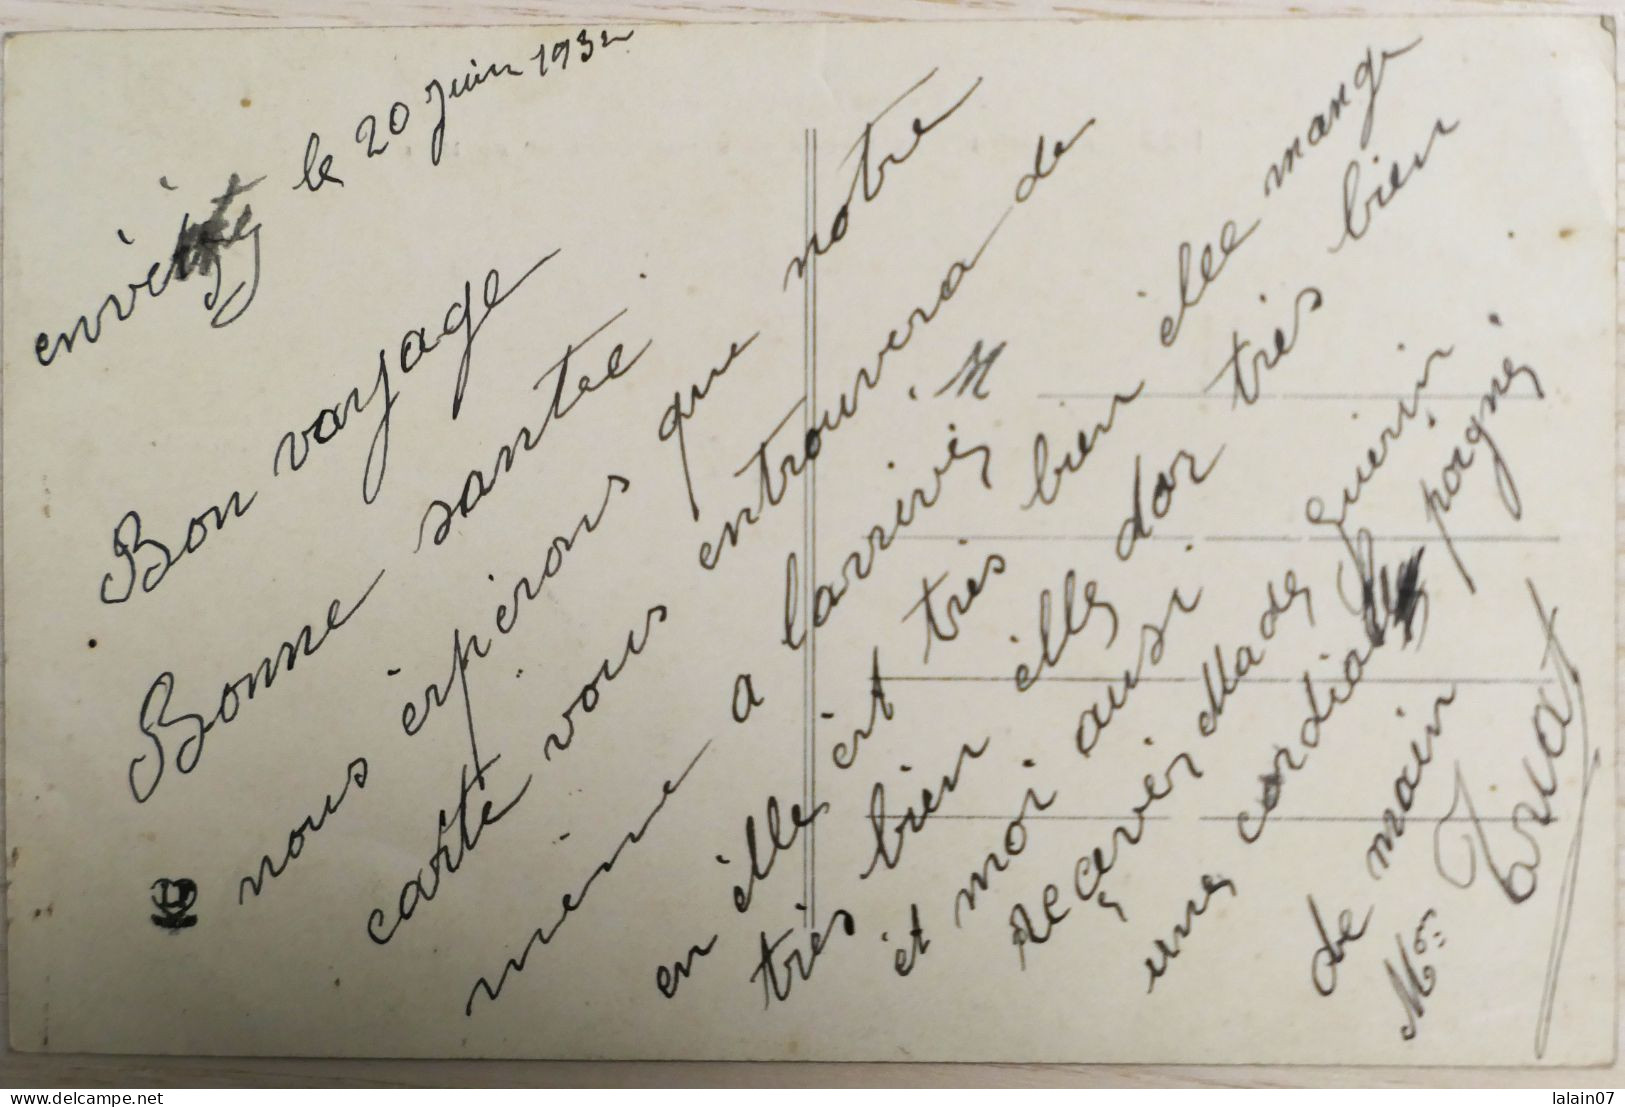 le 20 Juin 1932
Bon voyage
Bonne santée
nous èspérons que notre
carte vous entrouvera de
mème a larrivés
en éllé èst très bien élee mange
très bien éllé dor très bien
èt moi aussi
Reçever Madé Guérin
uné cordiale poigné
de main
Triat
delcampe.net
lalain07